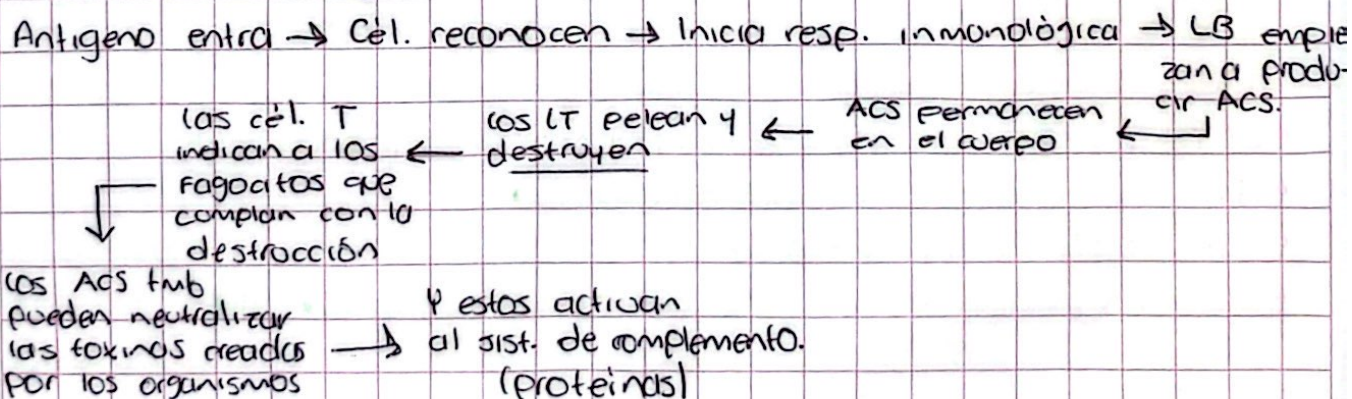 Antígeno entra → Cél. reconocen → Inicia resp. inmonològica → LB empie
zan a produ-
cir ACS.
ACS permanecen
en el cuerpo
los LT pelean y
destruyen
las cél. T
indican a los
fagocitos que
complan con la
destrucción
los ACS tmb
pueden neutralizar
las toxinas creadas
por los organismos
Y estos activan
al sist. de complemento.
(proteinas)